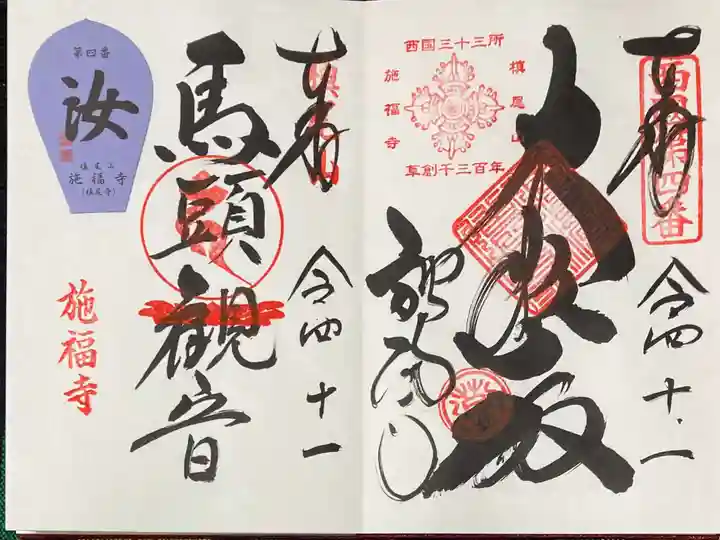 奉拝
西国第四番
令四 十一
西国三十三所
槙尾山
施福寺
草創千三百年
大悲殿
施福寺
奉拝
令四 十一
馬頭観音
第四番
汝
槙尾山
施福寺
(槙尾寺)
施福寺